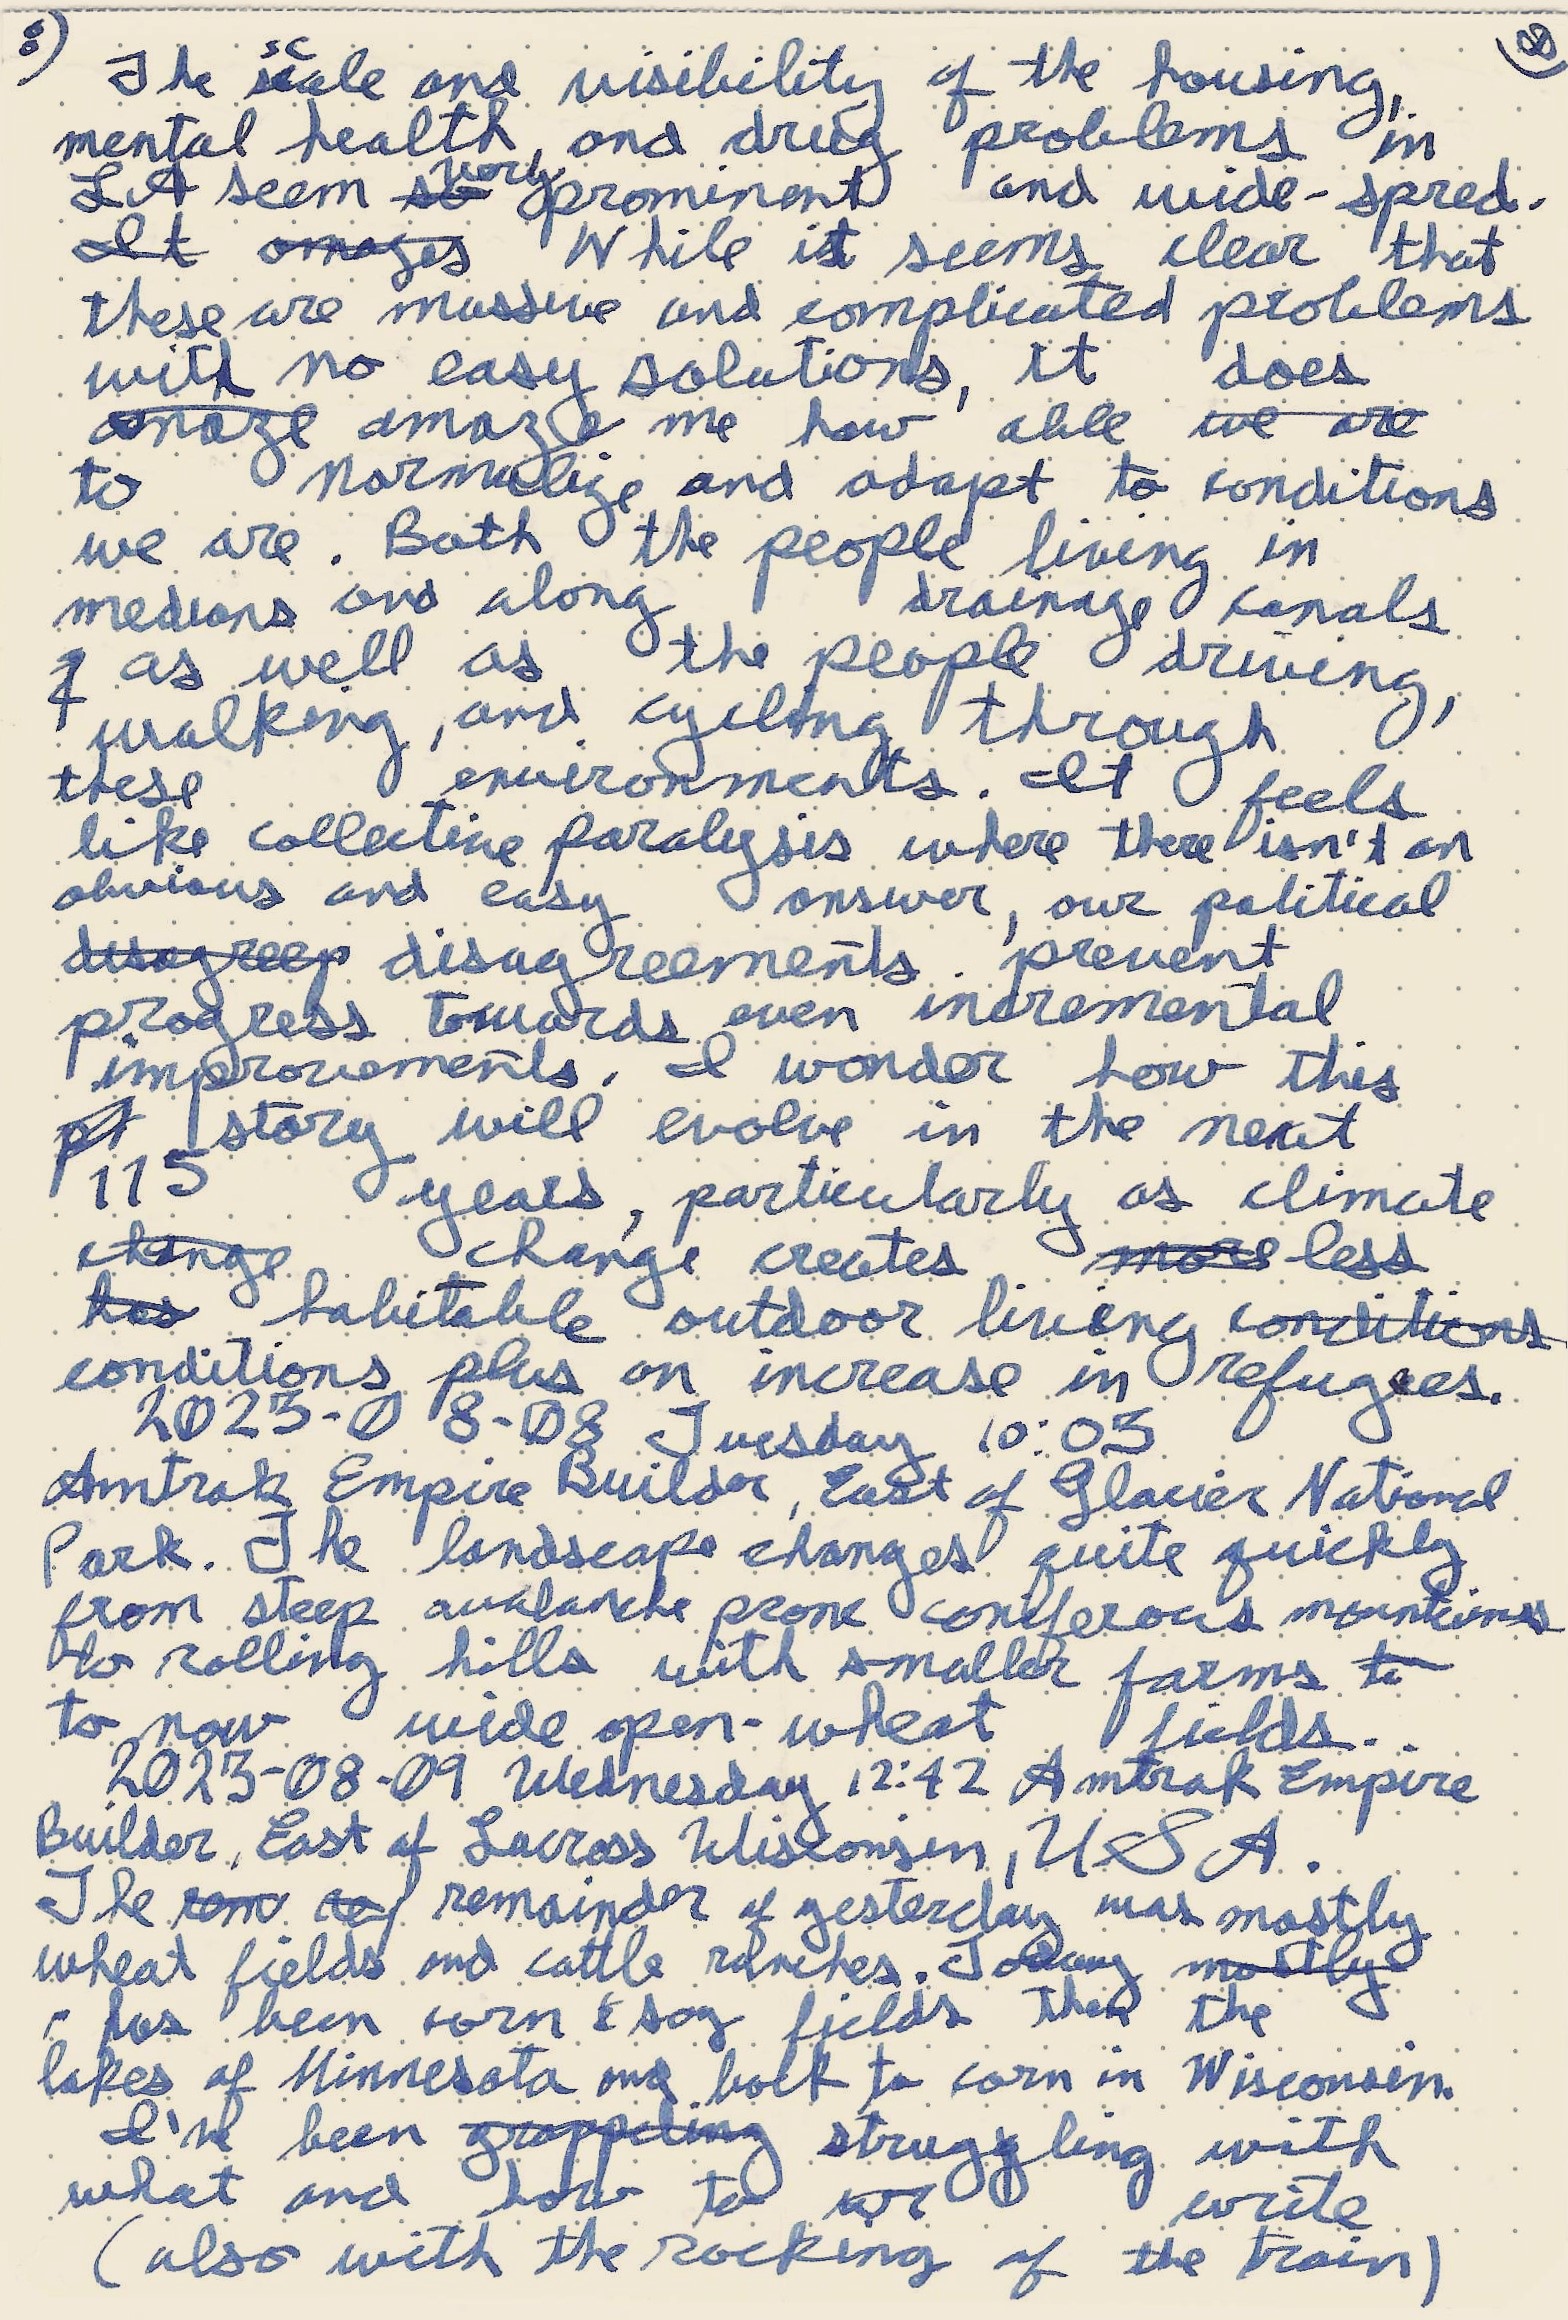 8)
The scale and visibility of the housing,
mental health, and drug problems in
LA seem so very prominent and wide-spred.
It amazes While it seems clear that
these are massive and complicated problems
with no easy solutions, it does
amaze amaze me how able we are
to normalize and adapt to conditions
we are. Both the people living in
medians and along drainage canals
as well as the people driving,
walking, and cycling through
these environments. It feels
like collective paralysis where there isn't an
obvious and easy answer, our political
disagreep disagreements prevent
progress towards even incremental
improvements. I wonder how this
pt story will evolve in the next
115 years, particularly as climate
change change creates more less
has habitable outdoor living conditions
conditions plus an increase in refugees.
2023-08-08 Tuesday 10:03
Amtrak Empire Builder, East of Glacier National
Park. The landscape changes quite quickly
from steep avalanche prone coniferous mountains
to rolling hills with smaller farms to
to now wide open-wheat fields.
2023-08-09 Wednesday 12:42 Amtrak Empire
Builder, East of Lacross Wisconsin, USA.
The rem remainder of yesterday was mostly
wheat fields and cattle ranches. Today mostly
has been corn & soy fields then the
lakes of Minnesota and back to corn in Wisconsin.
I've been grappeling struggling with
what and how to wr write
(also with the rocking of the train)